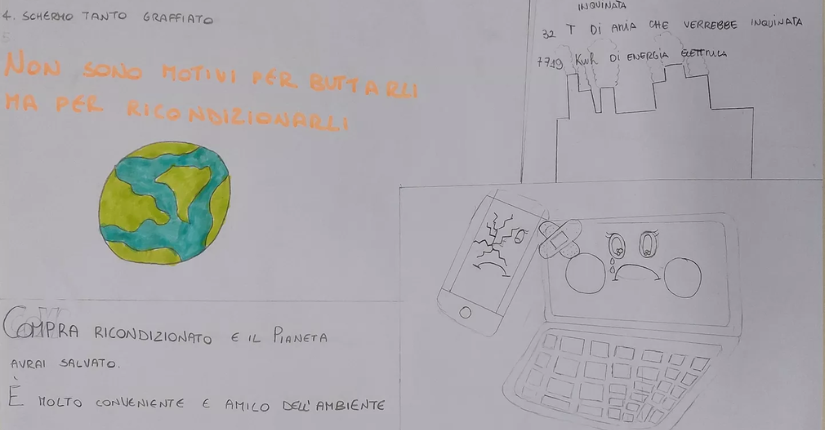 4. SCHERMO TANTO GRAFFIATO
5.
NON SONO MOTIVI PER BUTTARLI
MA PER RICONDIZIONARLI
INQUINATA
32 T DI ARIA CHE VERREBBE INQUINATA
7719 KWh DI ENERGIA ELETTRICA
COMPRA RICONDIZIONATO E IL PIANETA
AVRAI SALVATO.
È MOLTO CONVENIENTE E AMICO DELL'AMBIENTE